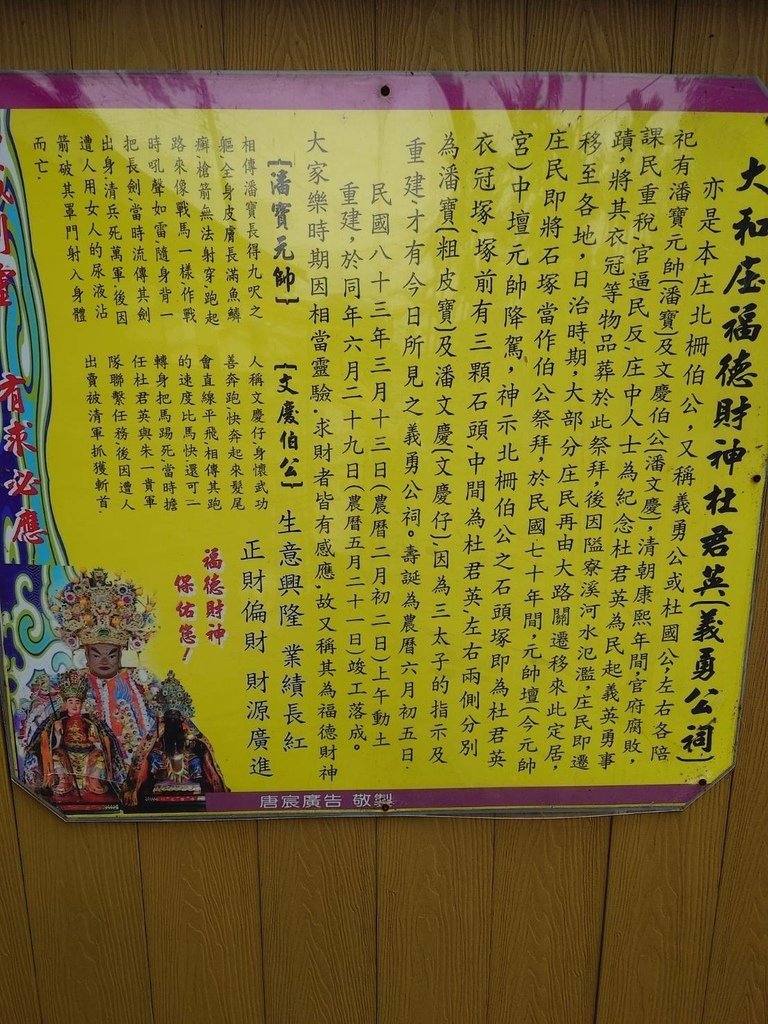 大和庄福德財神杜君英(義勇公祠)
亦是本庄北柵伯公,又稱義勇公或杜國公,左右各陪
祀有潘寶元帥(潘寶)及文慶伯公(潘文慶),清朝康熙年間,官府腐敗,
課民重稅,官逼民反、庄中人士為紀念杜君英為民起義英勇事
蹟,將其衣冠等物品葬於此祭拜,後因隘寮溪河水氾濫,庄民即遷
移至各地,日治時期,大部分庄民再由大路關遷移來此定居,
庄民即將石塚當作伯公祭拜,於民國七十年間,元帥壇(今元帥
宮)中壇元帥降駕,神示北柵伯公之石頭塚即為杜君英
衣冠塚、塚前有三顆石頭、中間為杜君英、左右兩側分別
為潘寶(粗皮寶)及潘文慶(文慶仔)、因為三太子的指示及
重建、才有今日所見之義勇公祠。壽誕為農曆六月初五日.
民國八十三年三月十三日(農曆二月初二日)上午動土
重建,於同年六月二十九日(農曆五月二十一日)竣工落成。
大家樂時期因相當靈驗.求財者皆有感應、故又稱其為福德財神
【潘寶元帥】
相傳潘寶長得九呎之
軀、全身皮膚長滿魚鱗
癬、槍箭無法射穿、跑起
路來像戰馬一樣、作戰
時吼聲如雷、隨身背一
把長劍、當時流傳其劍
出身清兵死萬軍、後因
遭人用女人的尿液沾
箭、破其罩門射入身體
而亡.
【文慶伯公】
人稱文慶仔身懷武功
善奔跑、快奔起來髮尾
會直線平飛、相傳其跑
的速度比馬快、還可一
轉身把馬踢死、當時擔
任杜君英與朱一貴軍
隊聯繫任務後因遭人
出賣被清軍抓獲斬首.
生意興隆 業績長紅
正財偏財 財源廣進
福德財神
保佑您!
有求必應
唐宸廣告 敬製